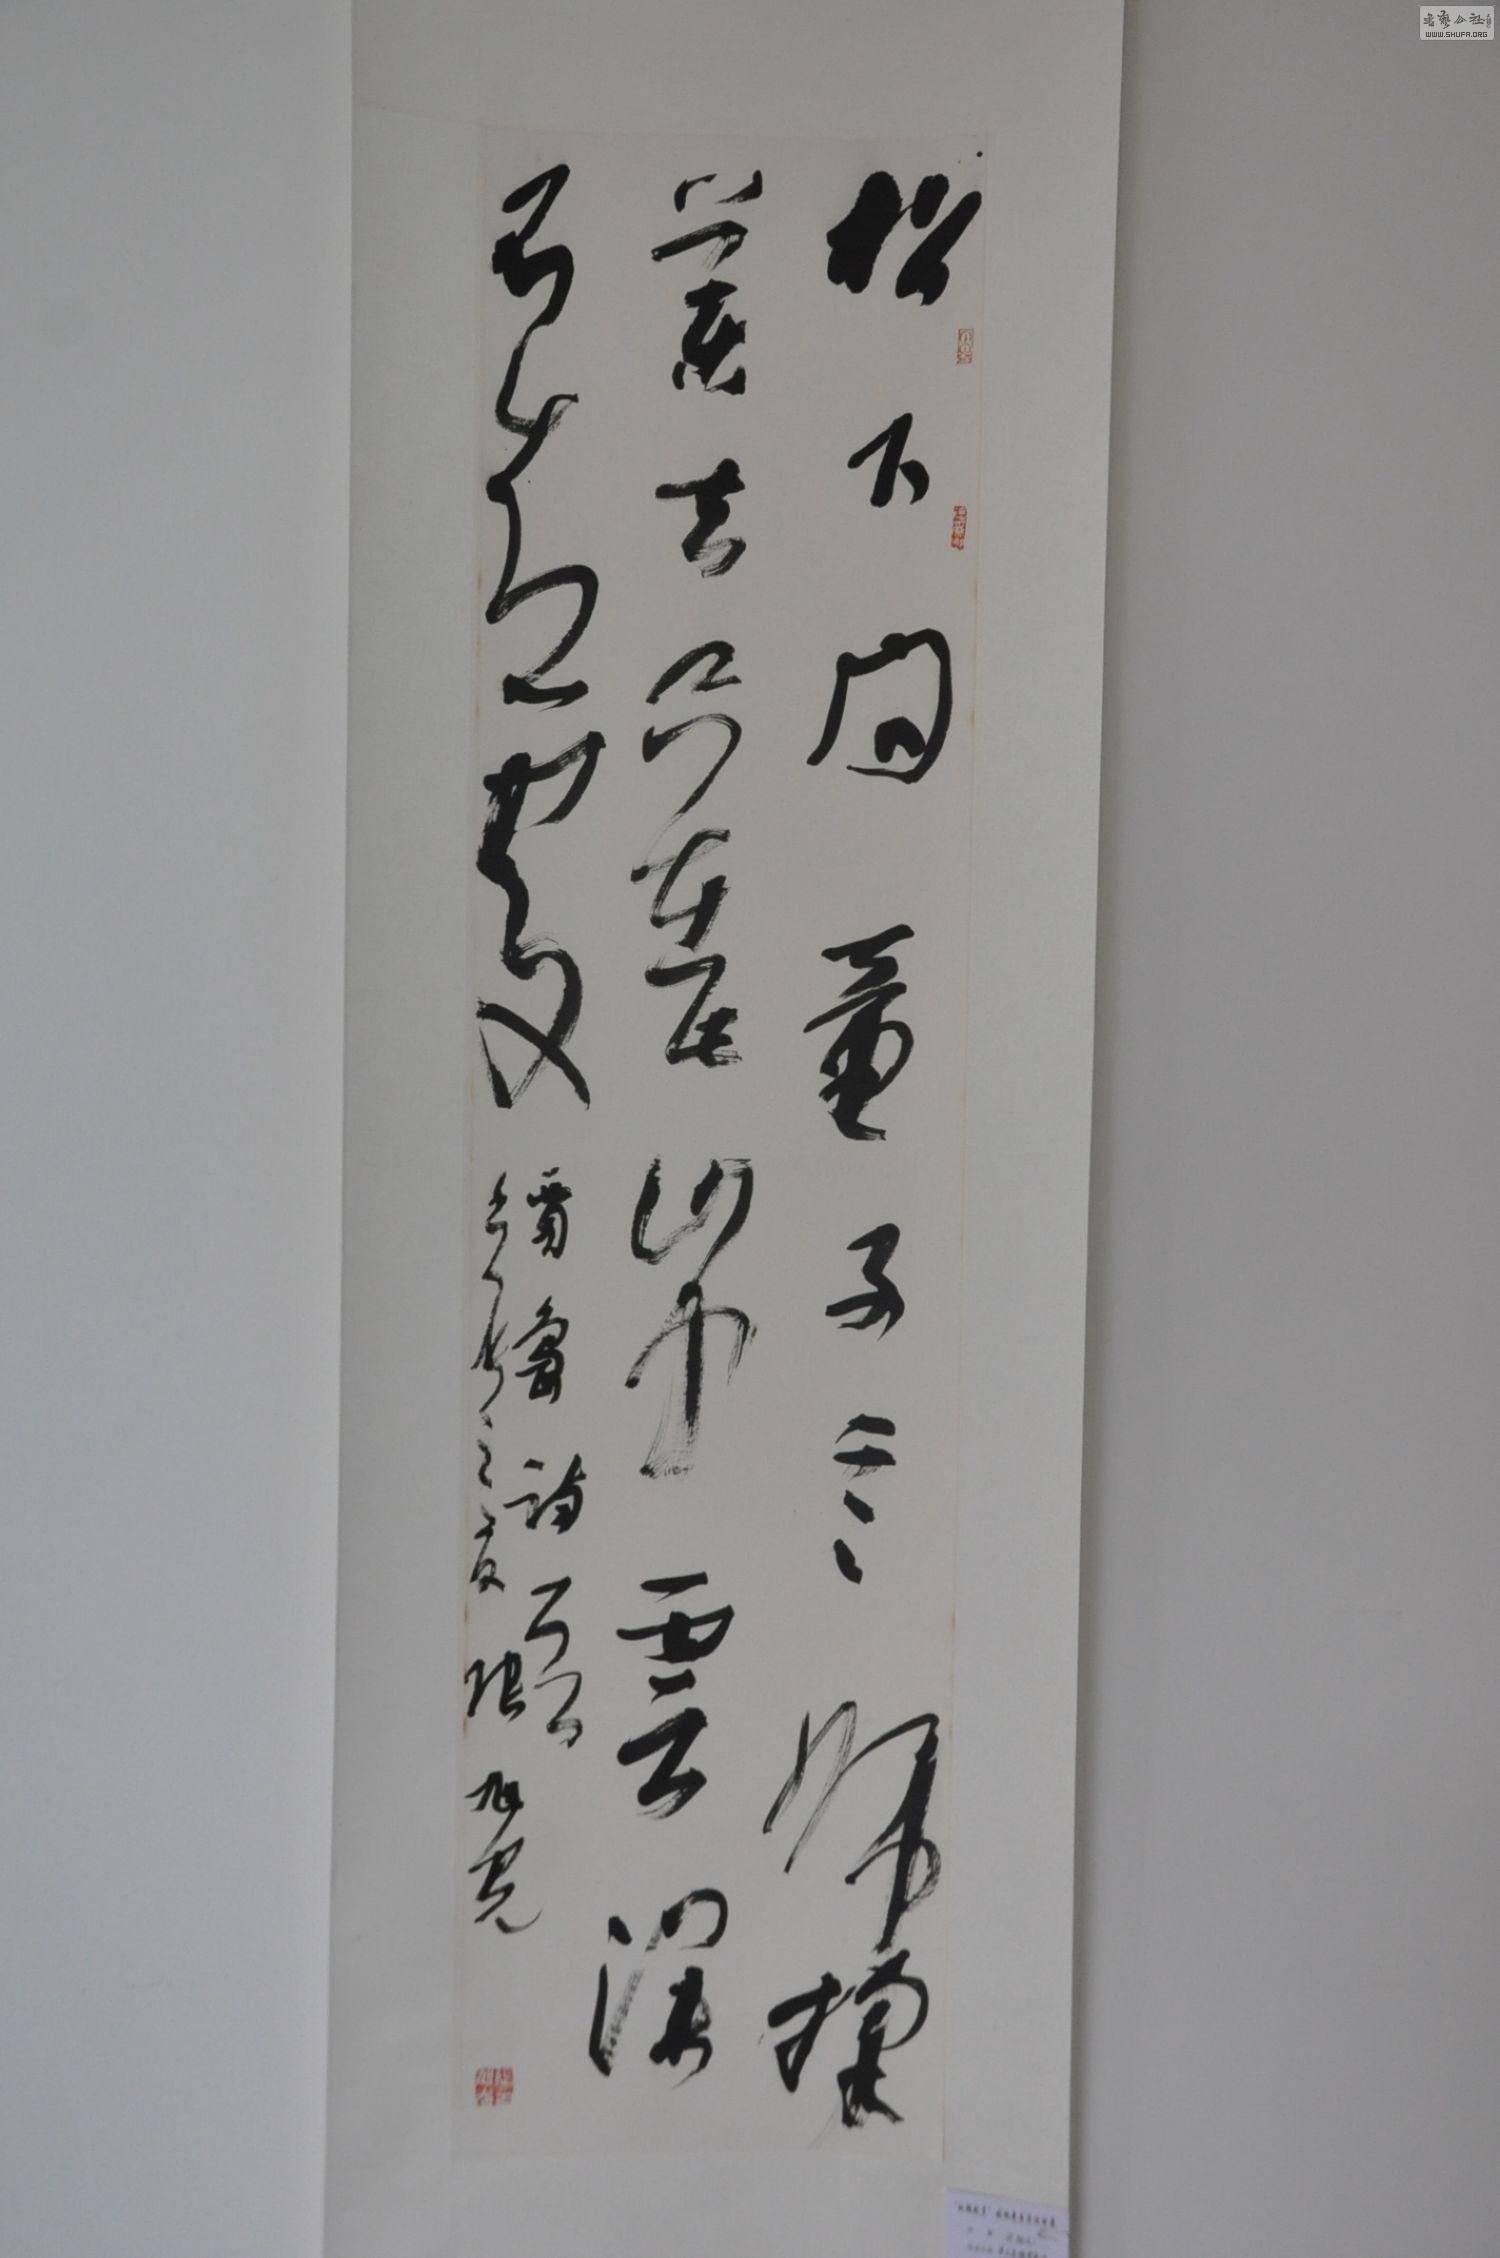 松下问童子言師採
藥去只在此山中雲深
不知處 賈島詩一首
之夏張旭光
書藝公社
WWW.SHUFA.ORG